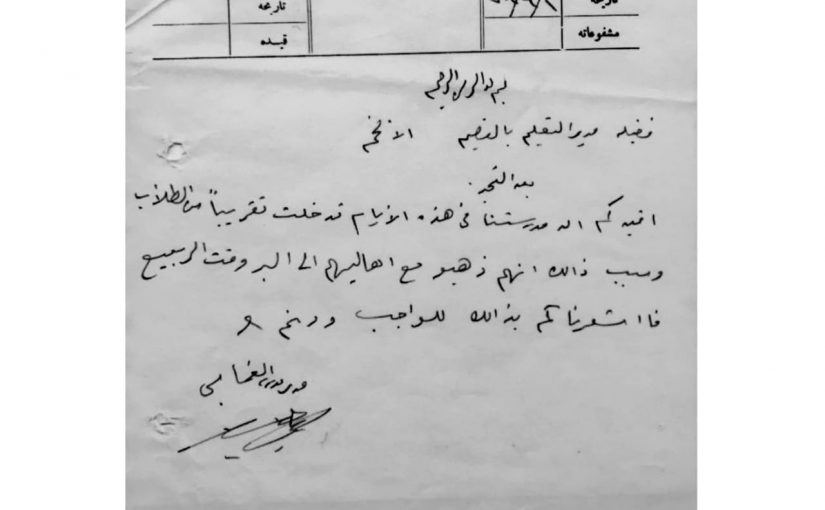 تاريخه
تاريخه
مشفوعاته
قيده
بسم الله الرحمن الرحيم
فضيلة مدير التعليم بالقصيم الافخم
بعد التحية
افيدكم ان مدرستنا في هذه الايام قد خلت تقريباً من الطلاب
وسبب ذالك انهم ذهبو مع اهاليهم الى البر وقت الربيع
فاشعرناكم بذالك للواجب ودمتم
مدير مدرسة